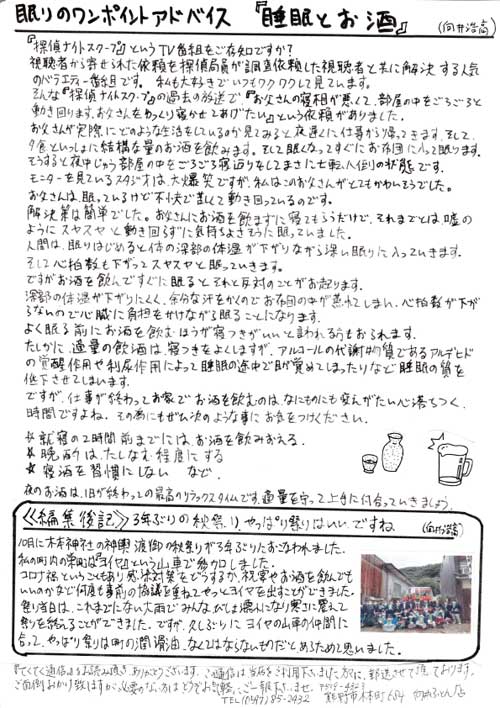 眠りのワンポイントアドバイス 『睡眠とお酒』 (向井浩高)
『探偵ナイトスクープ』というTV番組をご存知ですか?
視聴者から寄せられた依頼を探偵局員が調査依頼した視聴者と共に解決する人気
のバラエティー番組です。私も大好きでいつもワクワクして見ています。
そんな『探偵ナイトスクープ』の過去の放送で『お父さんの寝相が悪くて、部屋の中をごろごろと
動き回ります。お父さんをゆっくり寝かせてあげたい』という依頼がありました。
お父さんが実際にどのような生活をしているのか見てみると夜遅くに仕事から帰ってきます。そして、
夕食といっしょに結構な量のお酒を飲みます。そして眠くなってすぐにお布団に入って眠ります。
そうすると夜中じゅう部屋の中をごろごろ寝返りをしてまさに七転八倒の状態です。
モニターを見ているスタジオは、大爆笑ですが、私はこのお父さんがとてもかわいそうでした。
お父さんは、眠っているけど不快で苦しくて動き回っているのです。
解決策は簡単でした。お父さんにお酒を飲まずに寝てもらうだけで、それまでとは嘘の
ようにスヤスヤと動き回らずに気持ちよさそうに眠っていました。
人間は、眠りはじめると体の深部の体温が下がりながら深い眠りに入っていきます。
そして心拍数も下がってスヤスヤと眠っていきます。
ですがお酒を飲んですぐに眠るとそれと反対のことがお起ります。
深部の体温が下がりにくく、余分な汗をかくのでお布団の中が蒸れてしまい、心拍数が下が
らないので心臓に負担をかけながら眠ることになります。
よく眠る前にお酒を飲むほうが寝つきがいいと言われる方もおられます。
たしかに、適量の飲酒は、寝つきをよくしますが、アルコールの代謝物質であるアルデヒド
の覚醒作用や利尿作用によって睡眠の途中で目が覚めてしまったりなど睡眠の質を
低下させてしまいます。
ですが、仕事が終わってお家でお酒を飲むのは、なにものにも変えがたい心落ちつく、
時間ですよね。その為にもぜひ次のような事にお気をつけください。
☆就寝の2時間前までには、お酒を飲みおえる。
☆晩酌は、たしなむ程度にする
★寝酒を習慣にしない など。
夜のお酒は、1日が終わっての最高のリラックスタイムです。適量を守って上手に付合っていきましょう。
《編集後記》3年ぶりの秋祭り、やっぱり祭りはいい、ですね。 (向井浩高)
10月に木本神社の神輿渡御の秋祭りが3年ぶりにおこなわれました。
私の町内の栄町はヨイヤという山車で参加しました。
コロナ禍ということもあり感染対策をどうするか、祝宴やお酒を飲んでも
いいのかなど何度も事前の協議を重ねてやっとヨイヤを出すことができました。
祭り当日は、これまでにない大雨でみんなびしょ濡れになり寒さに震えて
祭りを終えることができました。ですが、久しぶりにヨイヤの山車の仲間に
会って、やっぱり祭りは町の潤滑油、なくてはならないものだとあらためて思いました。
『てくてく通信』をお読み頂き、ありがとうございます。この通信は当店をご利用下さいました方に、郵送させて頂いております。
ご面倒おかけ致しますが、必要のない方はどうぞお気軽にご一報下さいませ。
熊野市木本町684 向井ふとん店
TEL 0597・85-2432